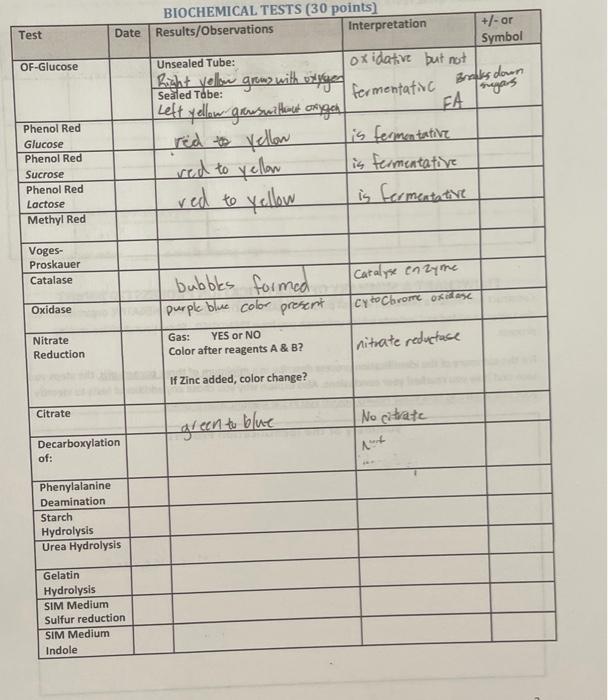 BIOCHEMICAL TESTS (30 points)
Test Date Results/Observations Interpretation +/- or Symbol
OF-Glucose
Unsealed Tube:
Right yellow grows with oxygen
Sealed Tube:
Left yellow grows without oxygen
oxidative but not
fermentative Breaks down sugars
FA
Phenol Red Glucose red to yellow is fermentative
Phenol Red Sucrose red to yellow is fermentative
Phenol Red Lactose red to yellow is fermentative
Methyl Red
Voges-Proskauer
Catalase bubbles formed Catalyse enzyme
Oxidase purple blue color present cytochrome oxidase
Nitrate Reduction
Gas: YES or NO
Color after reagents A & B?
If Zinc added, color change?
nitrate reductase
Citrate green to blue No citrate
Decarboxylation of:
Phenylalanine Deamination
Starch Hydrolysis
Urea Hydrolysis
Gelatin Hydrolysis
SIM Medium Sulfur reduction
SIM Medium Indole